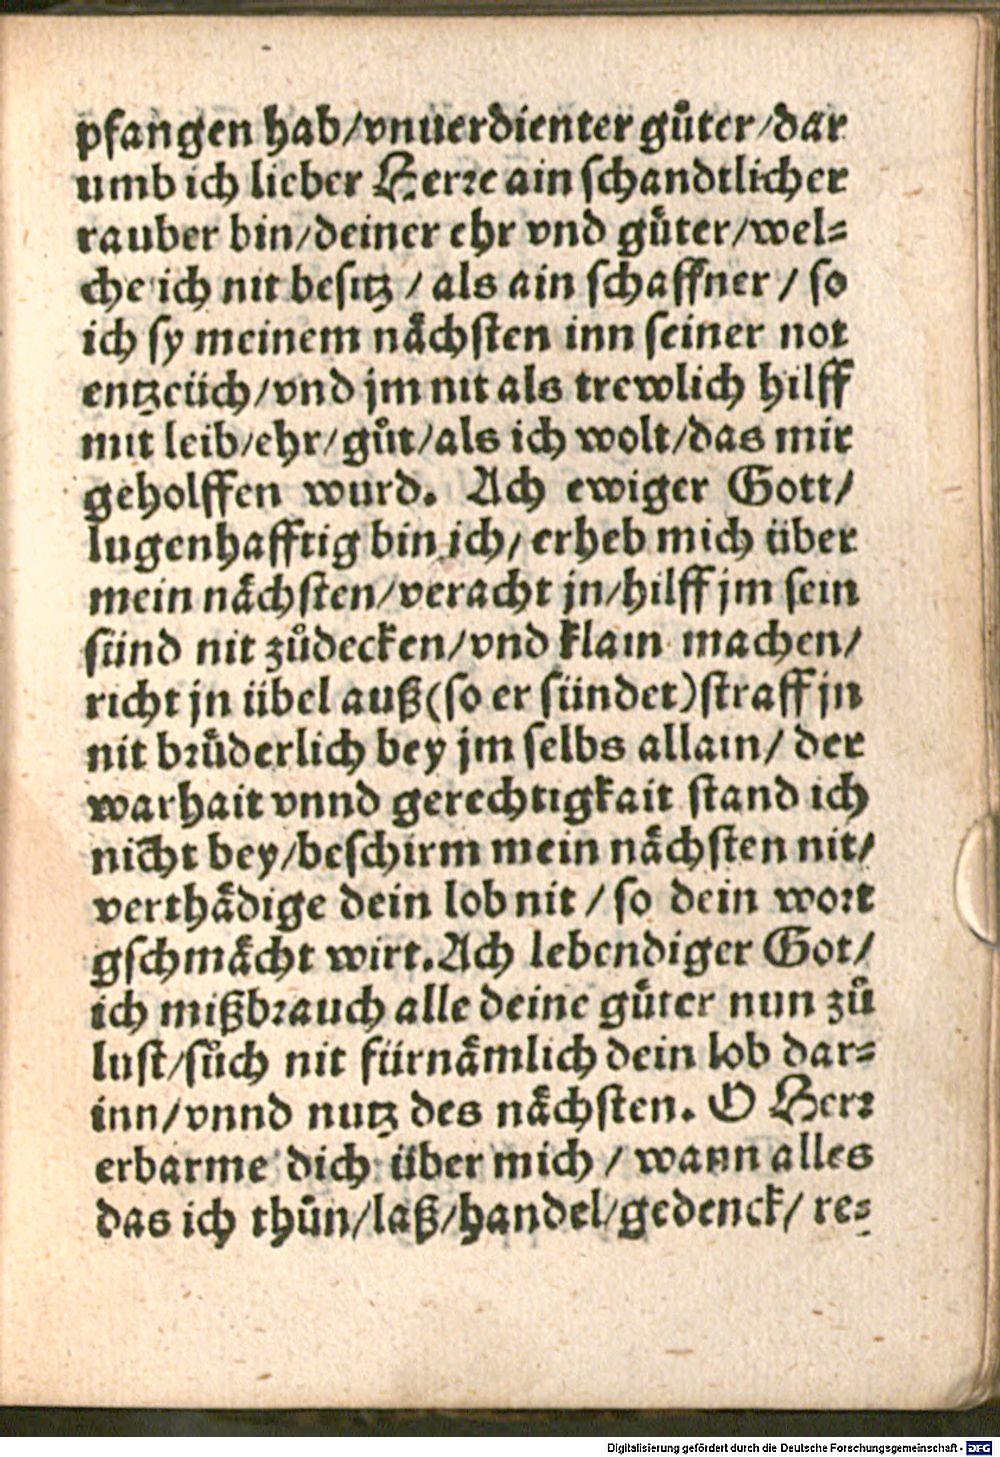 pfangen hab/vnuerdienter gůter/dar
umb ich lieber Herre ain schandtlicher
rauber bin/deiner ehr vnd gůter/wel-
che ich nit besitz / als ain schaffner / so
ich sy meinem nåchsten inn seiner not
entzeüch/vnd jm nit als trewlich hilff
mit leib/ehr/gůt/als ich wolt/das mir
geholffen wurd. Ach ewiger Gott/
lugenhafftig bin ich/ erheb mich über
mein nåchsten/veracht jn/hilff jm sein
sünd nit zůdecken/vnd klain machen/
richt jn übel auß(so er sündet)straff jn
nit brůderlich bey jm selbs allain/ der
warhait vnnd gerechtigkait stand ich
nicht bey/beschirm mein nåchsten nit/
verthådige dein lob nit / so dein wort
gschmåcht wirt. Ach lebendiger Got/
ich mißbrauch alle deine gůter nun zů
lust/sůch nit fürnåmlich dein lob dar-
inn/vnnd nutz des nåchsten. O Herr
erbarme dich über mich / wann alles
das ich thůn/laß/handel/gedenck/ re-
Digitalisierung gefördert durch die Deutsche Forschungsgemeinschaft - DFG